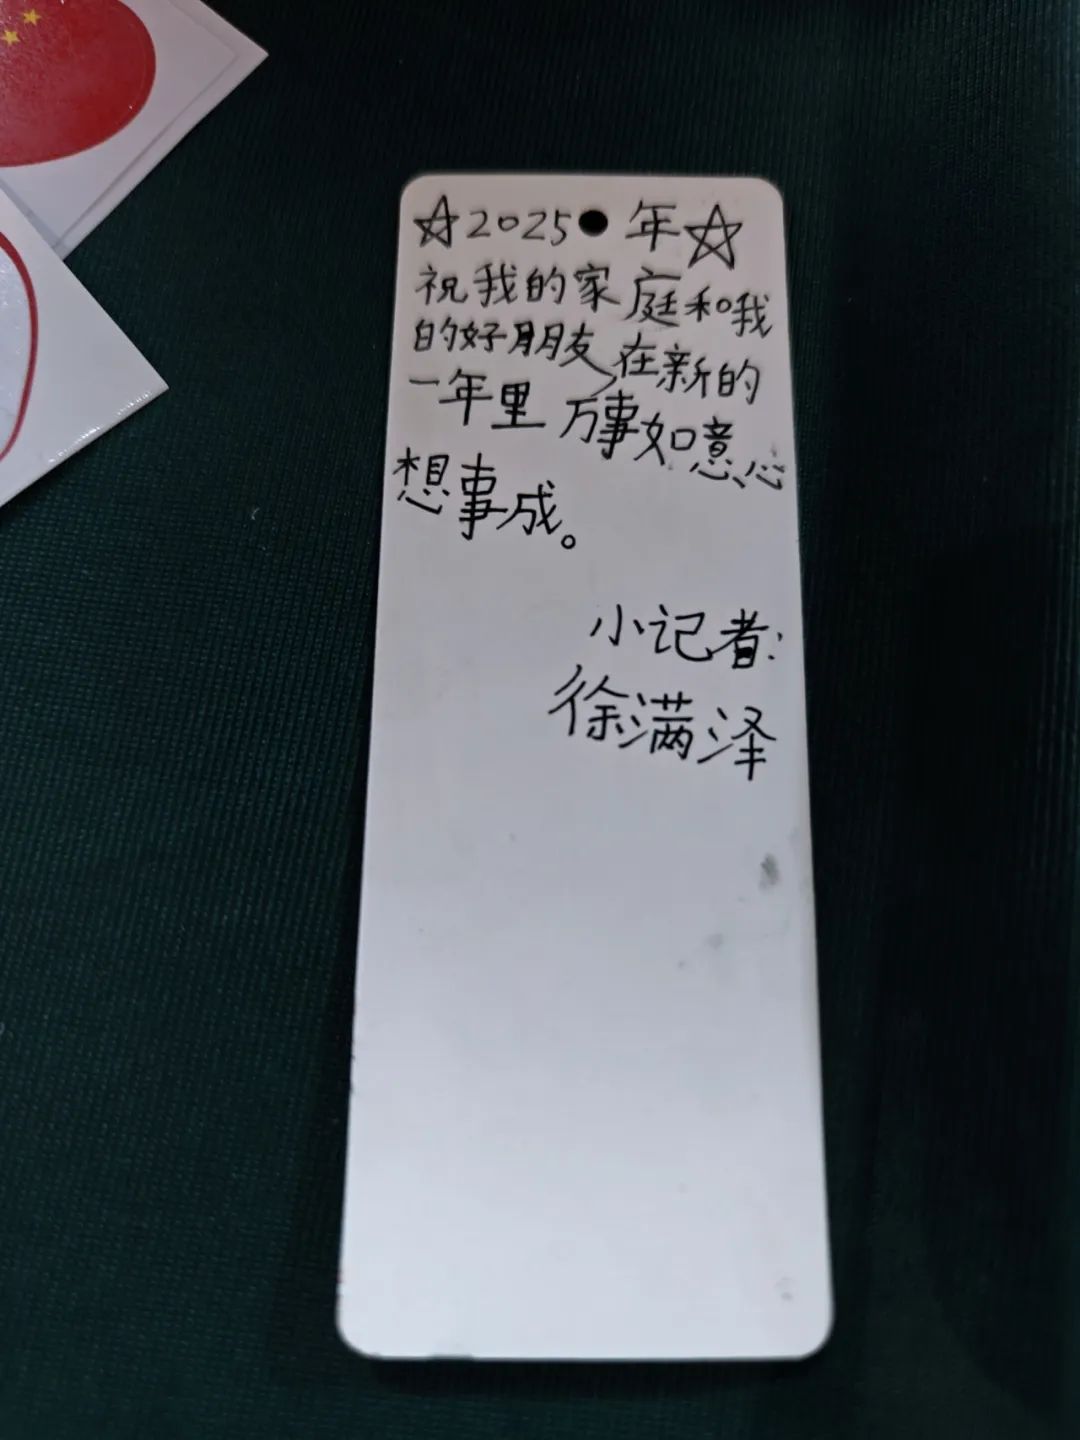 ☆2025年☆
祝我的家庭和我
的好朋友,在新的
一年里 万事如意、心
想事成。
小记者:
徐满泽